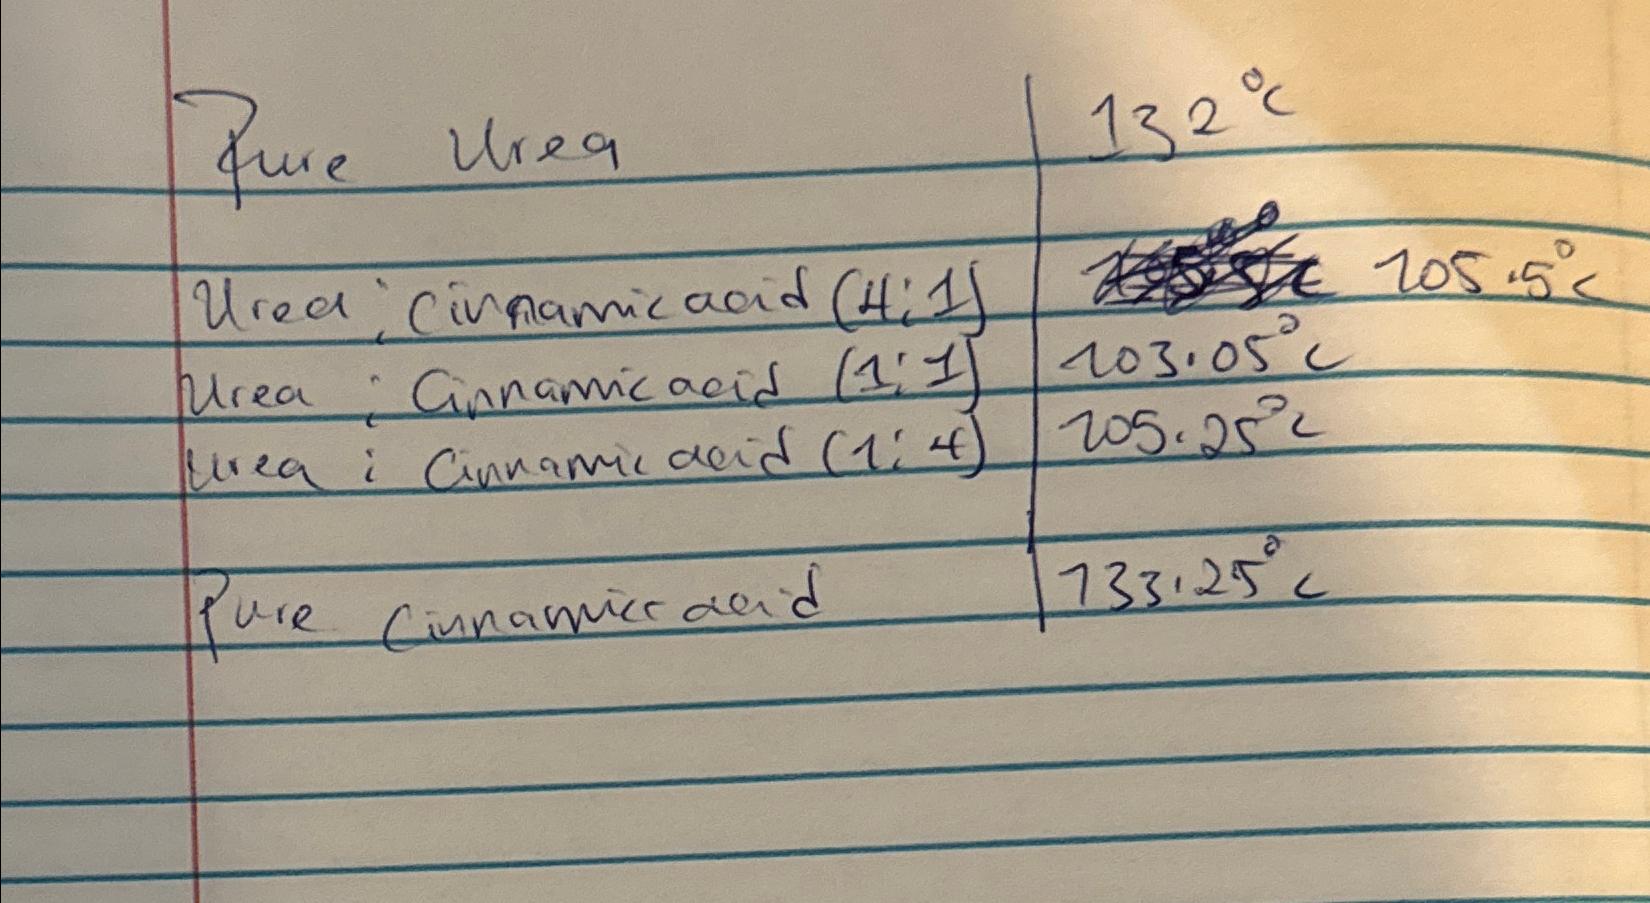 Pure Urea 132°C
Urea : Cinnamic acid (4:1) 105.5°C
Urea : Cinnamic acid (1:1) 103.05°C
Urea : Cinnamic acid (1:4) 105.25°C
Pure Cinnamic acid 133.25°C